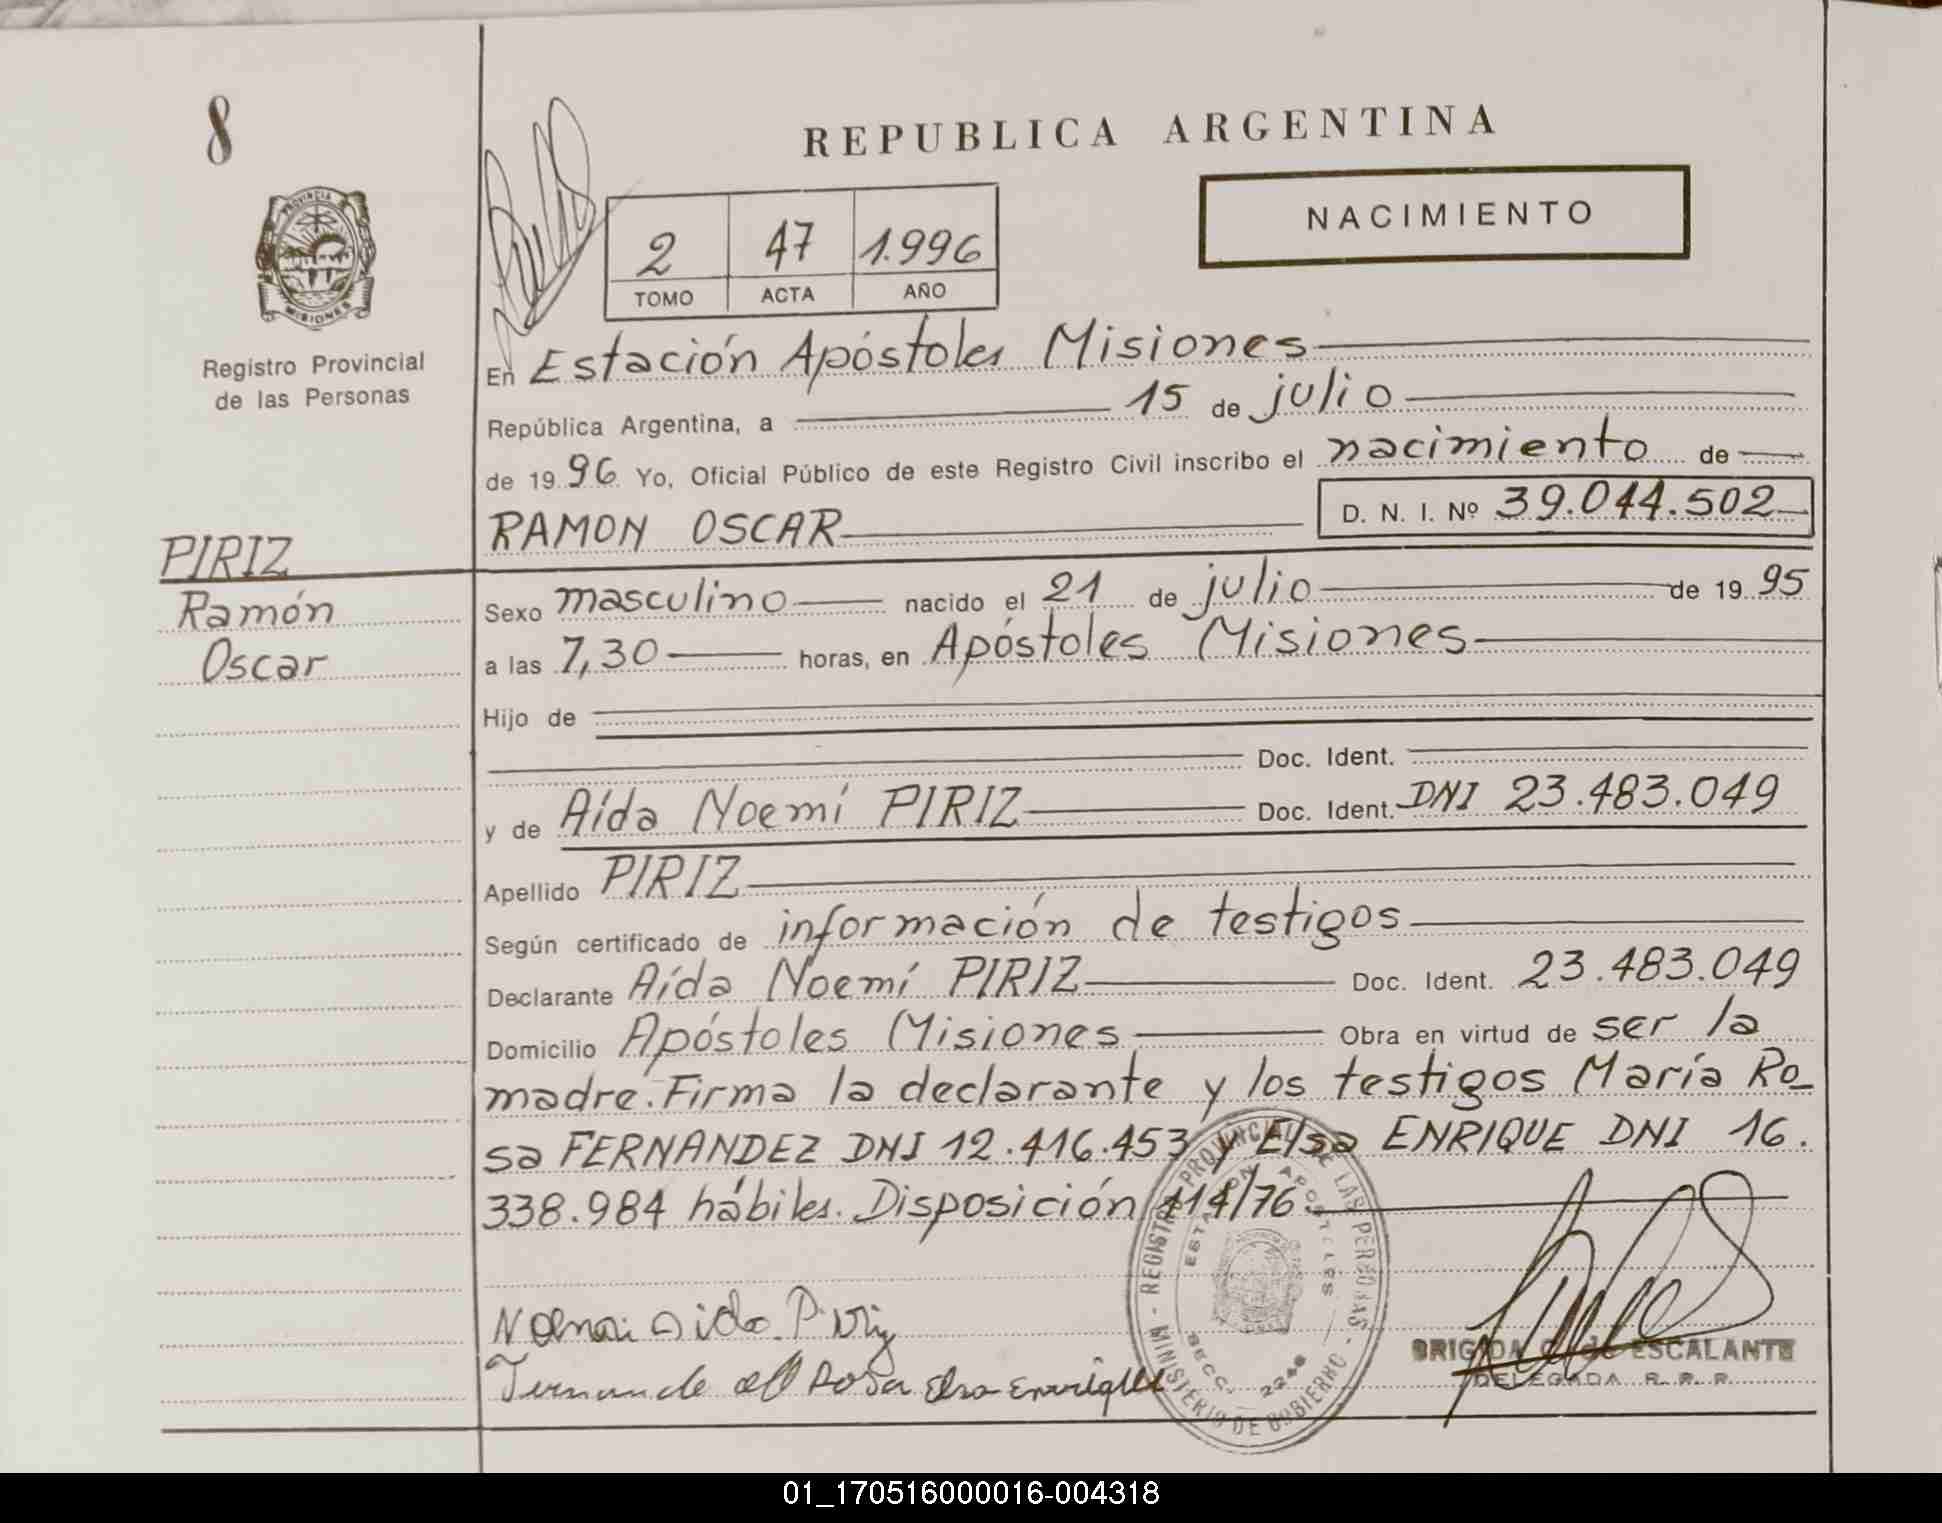 8
REPUBLICA ARGENTINA
NACIMIENTO
2 47 1.996
TOMO ACTA AÑO
PROVINCIA
MISIONES
Registro Provincial
de las Personas
En Estación Apóstoles Misiones
República Argentina, a 15 de julio
de 1996 Yo, Oficial Público de este Registro Civil inscribo el nacimiento de
RAMON OSCAR D. N. I. Nº 39.044.502
PIRIZ
Ramón
Oscar
Sexo masculino nacido el 21 de julio de 1995
a las 7,30 horas, en Apóstoles Misiones
Hijo de
Doc. Ident.
y de Aída Noemí PIRIZ Doc. Ident. DNI 23.483.049
Apellido PIRIZ
Según certificado de información de testigos
Declarante Aída Noemí PIRIZ Doc. Ident. 23.483.049
Domicilio Apóstoles Misiones Obra en virtud de ser la
madre. Firma la declarante y los testigos María Ro_
sa FERNANDEZ DNI 12.416.453 y Elsa ENRIQUE DNI 16.
338.984 hábiles. Disposición 114/76.
REGISTRO PROVINCIAL DE LAS PERSONAS - MINISTERIO DE GOBIERNO -
ESTACION APOSTOLES
SECC. 2246
Noemi Aida Piriz
Rosa Elsa Enrique
BRIGIDA ESCALANTE
DELEGADA R. P. P.
01_170516000016-004318